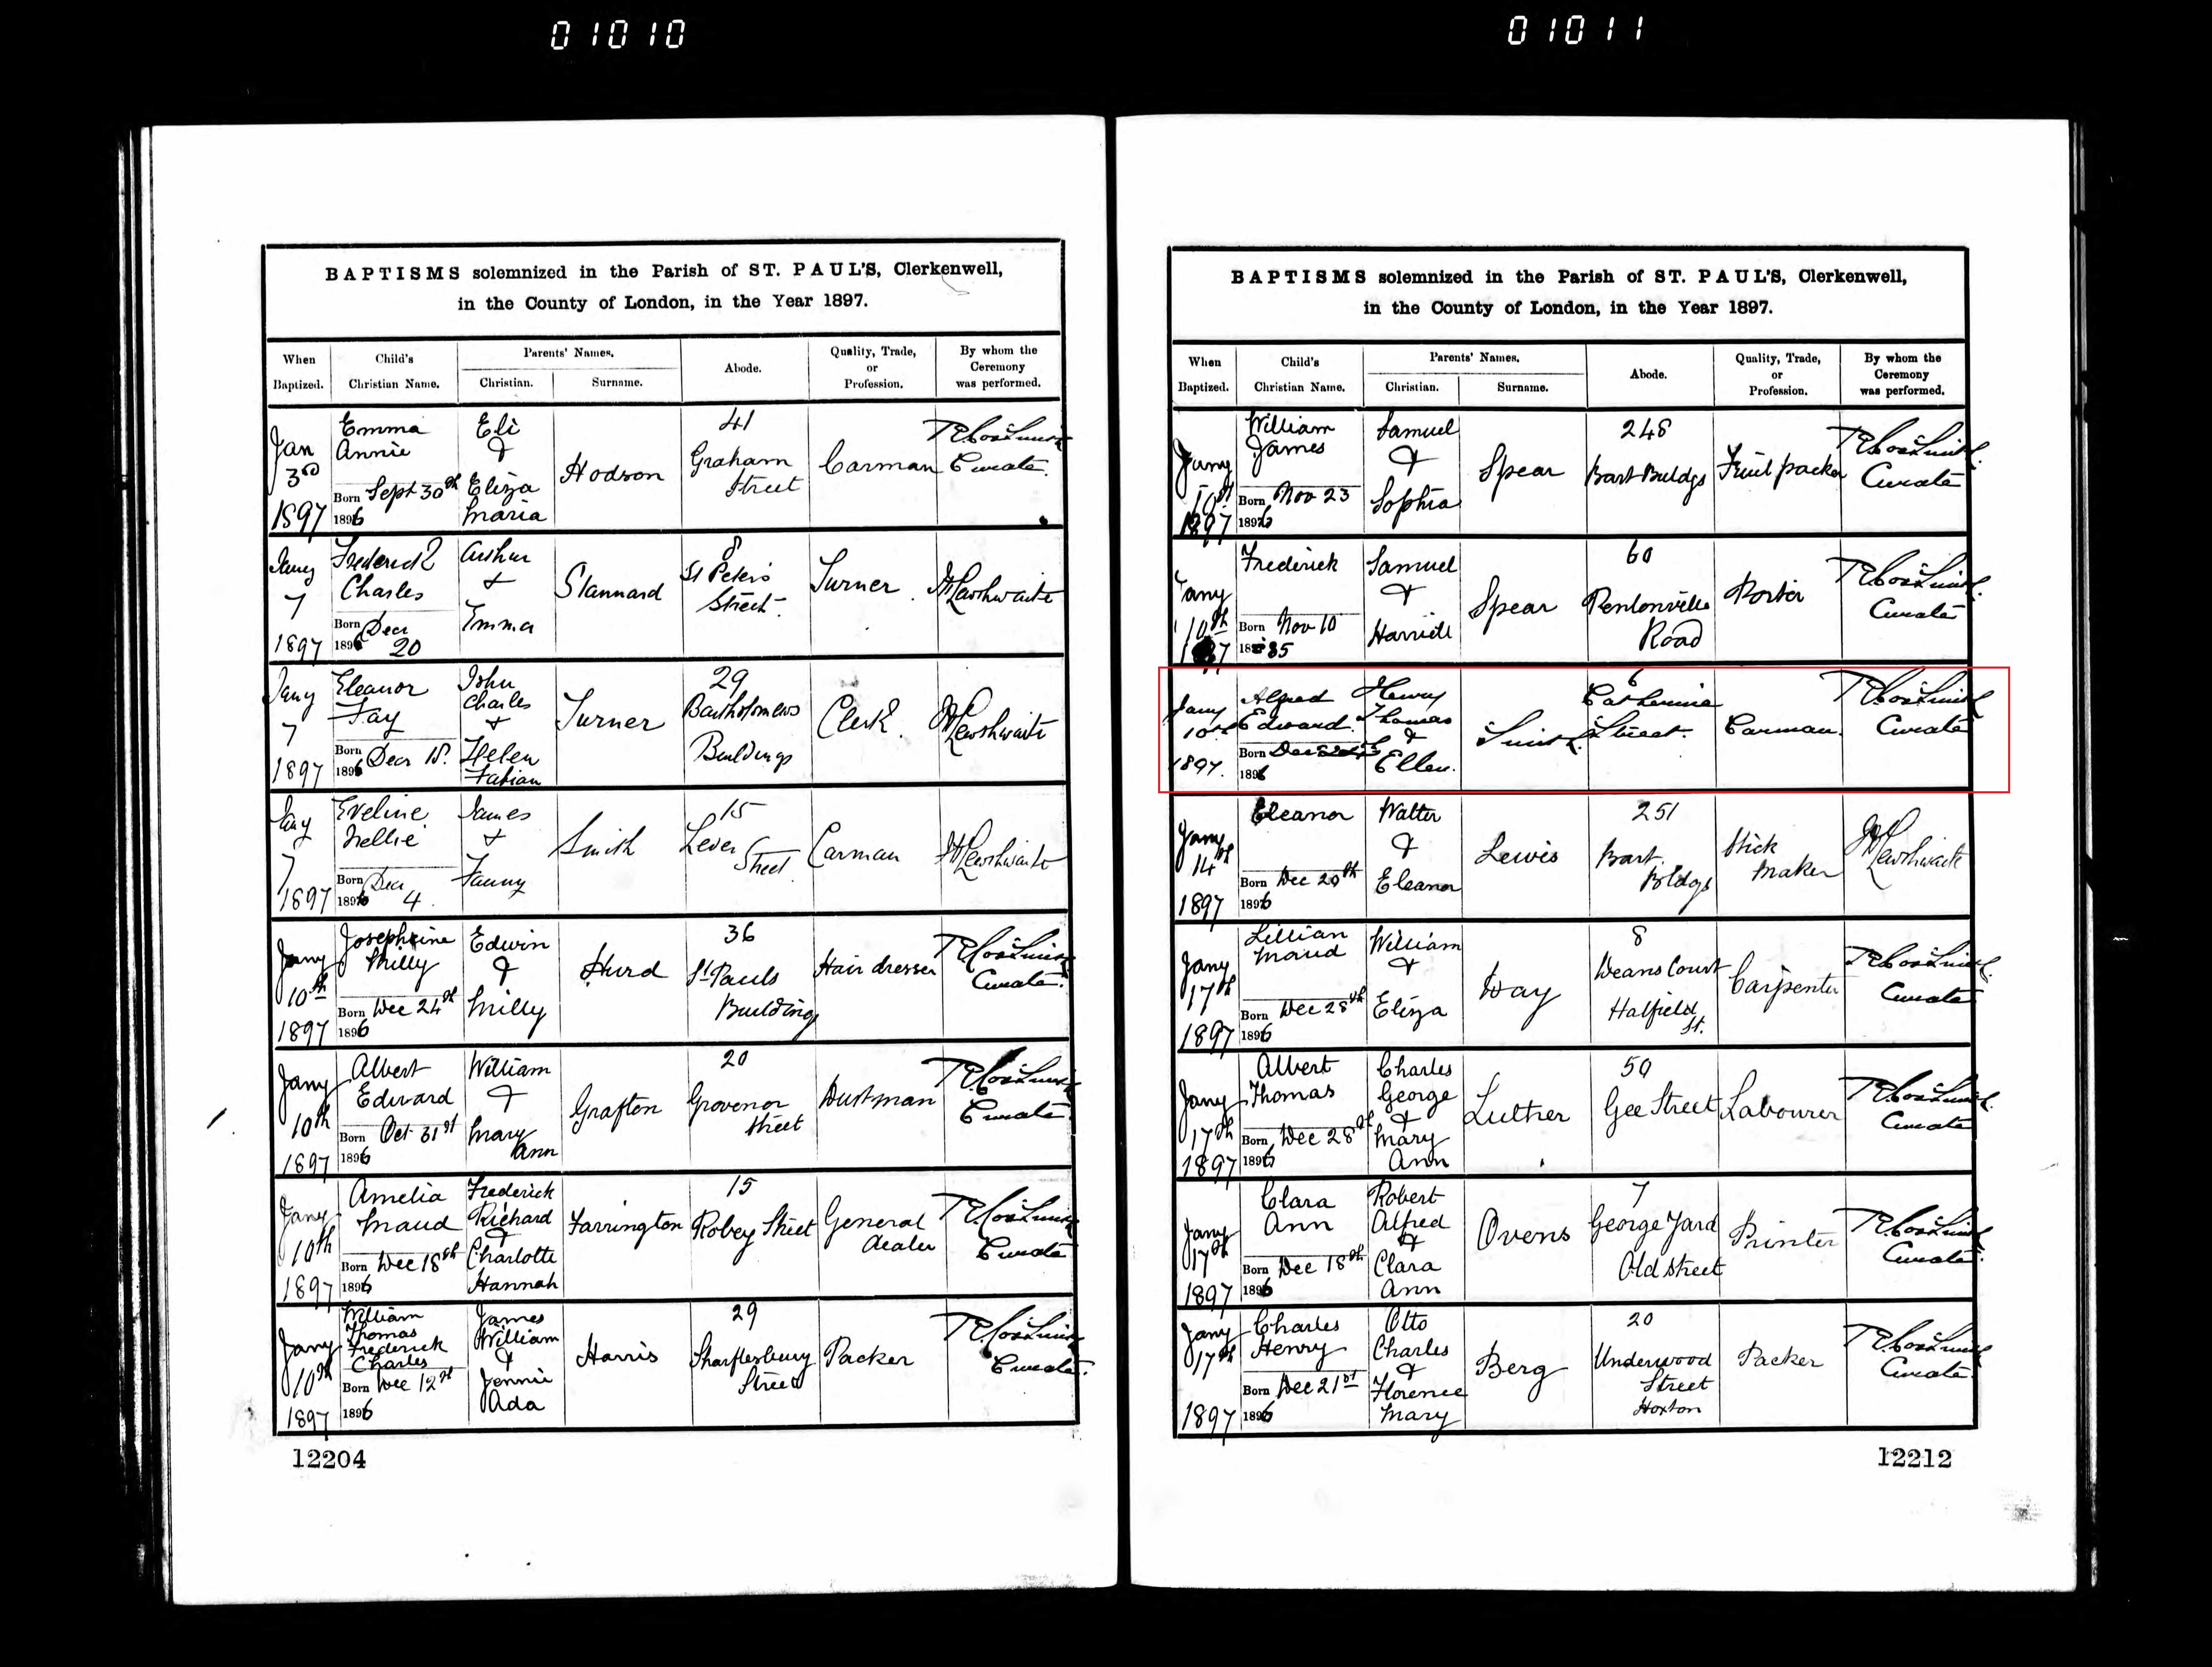 01010
01011
BAPTISMS solemnized in the Parish of ST. PAUL'S, Clerkenwell,
in the County of London, in the Year 1897.
When Baptized.
Child's Christian Name.
Parents' Names.
Christian.
Surname.
Abode.
Quality, Trade, or Profession.
By whom the Ceremony was performed.
Jan 3rd 1897
Emma Annie
Born Sept 30th 1896
Eli & Eliza Maria
Hodson
41 Graham Street
Carman
Curate.
Jany 7 1897
Frederick Charles
Born Decr 20 1896
Arthur & Emma
Stannard
8 St Peters Street.
Turner.
Jany 7 1897
Eleanor Fay
Born Decr 18. 1896
John Charles & Helen Fabian
Turner
29 Bartholomews Buildings
Clerk.
Jany 7 1897
Eveline Nellie
Born Decr 4. 1896
James & Fanny
Smith
15 Lever Street.
Carman
Jany 10th 1897
Josephine Milly
Born Dec 24th 1896
Edwin & Milly
Hurd
36 St Pauls Building
Hair dresser
Curate.
Jany 10th 1897
Albert Edward
Born Oct 31st 1896
William & Mary Ann
Grafton
20 Grovenor Street
Dustman
Curate.
Jany 10th 1897
Amelia Maud
Born Dec 18th 1896
Frederick Richard & Charlotte Hannah
Farrington
15 Robey Street
General dealer
Curate
Jany 10th 1897
William Thomas Frederick Charles
Born Dec 12th 1896
James William & Jennie Ada
Harris
29 Sharftesbury Street
Packer
Curate.
12204
BAPTISMS solemnized in the Parish of ST. PAUL'S, Clerkenwell,
in the County of London, in the Year 1897.
When Baptized.
Child's Christian Name.
Parents' Names.
Christian.
Surname.
Abode.
Quality, Trade, or Profession.
By whom the Ceremony was performed.
Jany 10th 1897
William James
Born Nov 23 1896
Samuel & Sophia
Spear
248 Bart Buldgs
Fruit packer
Curate
Jany 10th 1897
Frederick
Born Nov 10 1885
Samuel & Harriett
Spear
60 Pentonville Road
Porter
Curate
Jany 10th 1897.
Alfred Edward.
Born Dec 1896
Henry Thomas & Ellen.
Smith.
6 Catherine Street.
Carman.
Curate
Jany 14th 1897
Eleanor
Born Dec 20th 1896
Walter & Eleanor
Lewis
251 Bart. Bldgs
Stick Maker
Jany 17th 1897
Lillian Maud
Born Dec 28th 1896
William & Eliza
Day
8 Deans Court Hatfield St.
Carpenter
Curate
Jany 17th 1897
Albert Thomas
Born Dec 28th 1896
Charles George & Mary Ann
Luther
50 Gee Street
Labourer
Curate
Jany 17th 1897
Clara Ann
Born Dec 18th 1896
Robert Alfred & Clara Ann
Ovens
7 George Yard Old Street
Printer
Curate.
Jany 17th 1897
Charles Henry
Born Dec 21st 1896
Otto Charles & Florence Mary
Berg
20 Underwood Street Hoxton
Packer
Curate.
12212